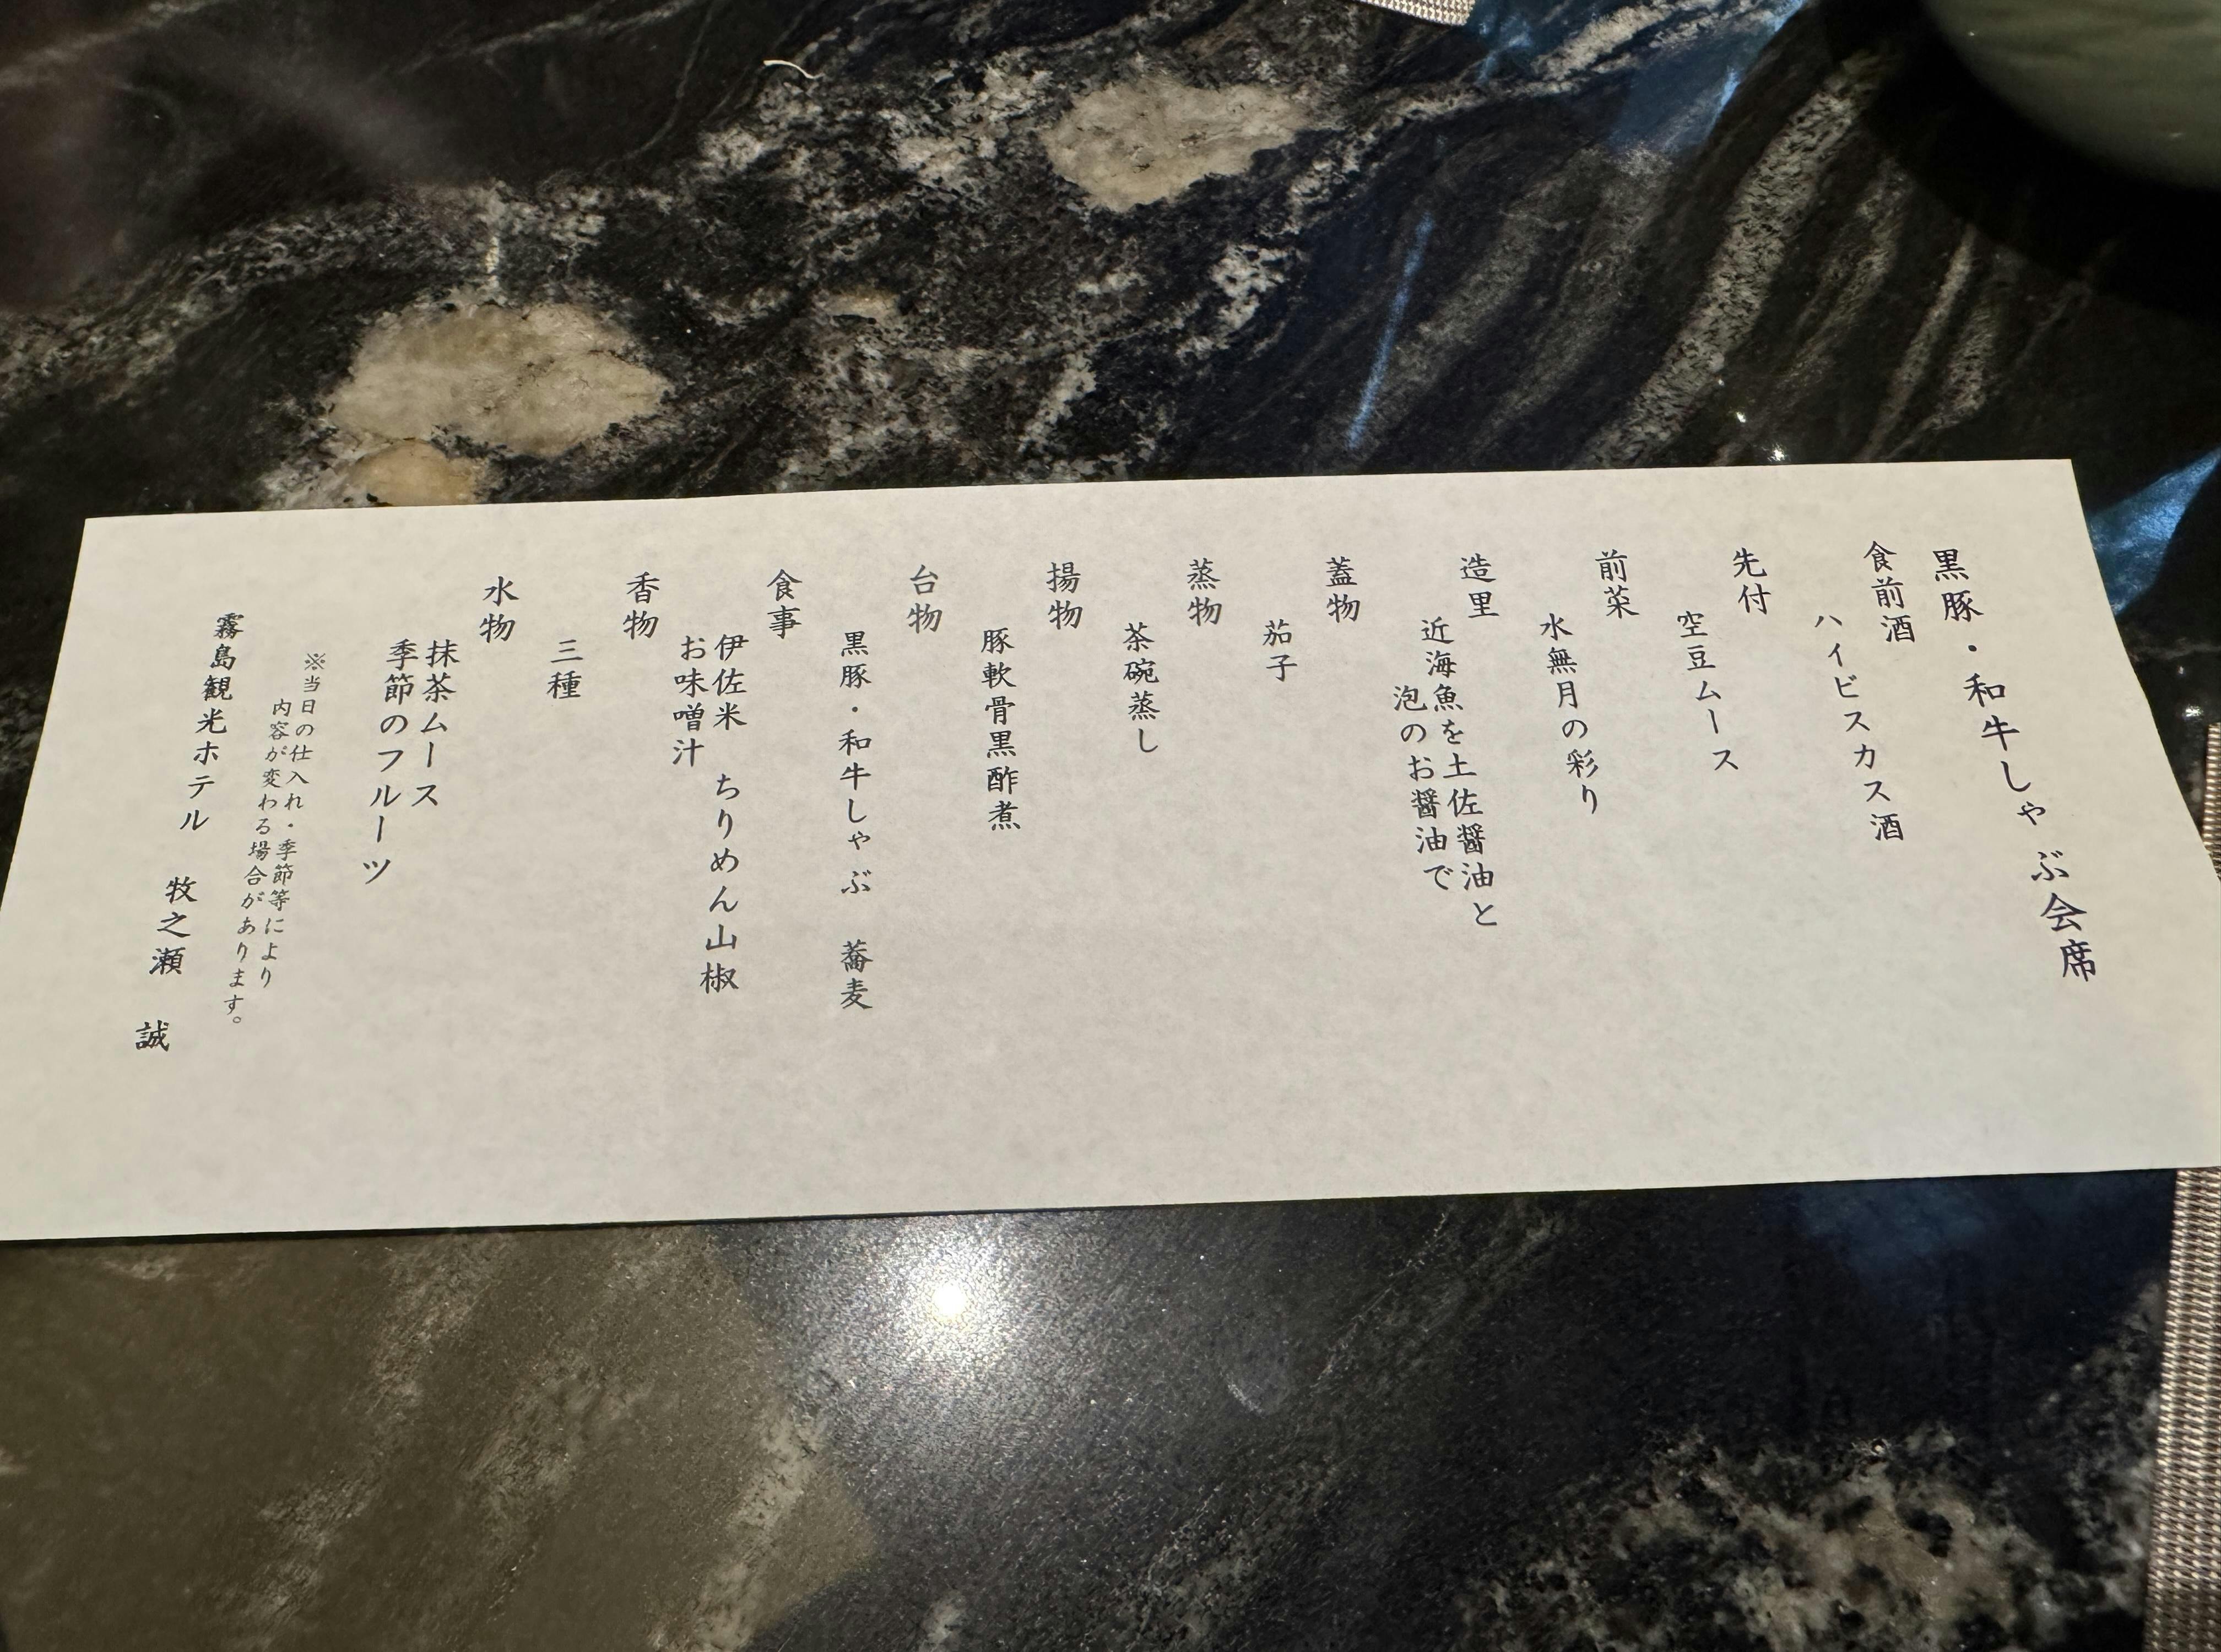 黒豚・和牛しゃぶ会席
食前酒
ハイビスカス酒
先付
空豆ムース
前菜
水無月の彩り
造里
近海魚を土佐醤油と
泡のお醤油で
蓋物
茄子
蒸物
茶碗蒸し
揚物
豚軟骨黒酢煮
台物
黒豚・和牛しゃぶ 蕎麦
食事
伊佐米 ちりめん山椒
お味噌汁
香物
三種
水物
抹茶ムース
季節のフルーツ
※当日の仕入れ・季節等により
内容が変わる場合があります。
霧島観光ホテル 牧之瀬 誠